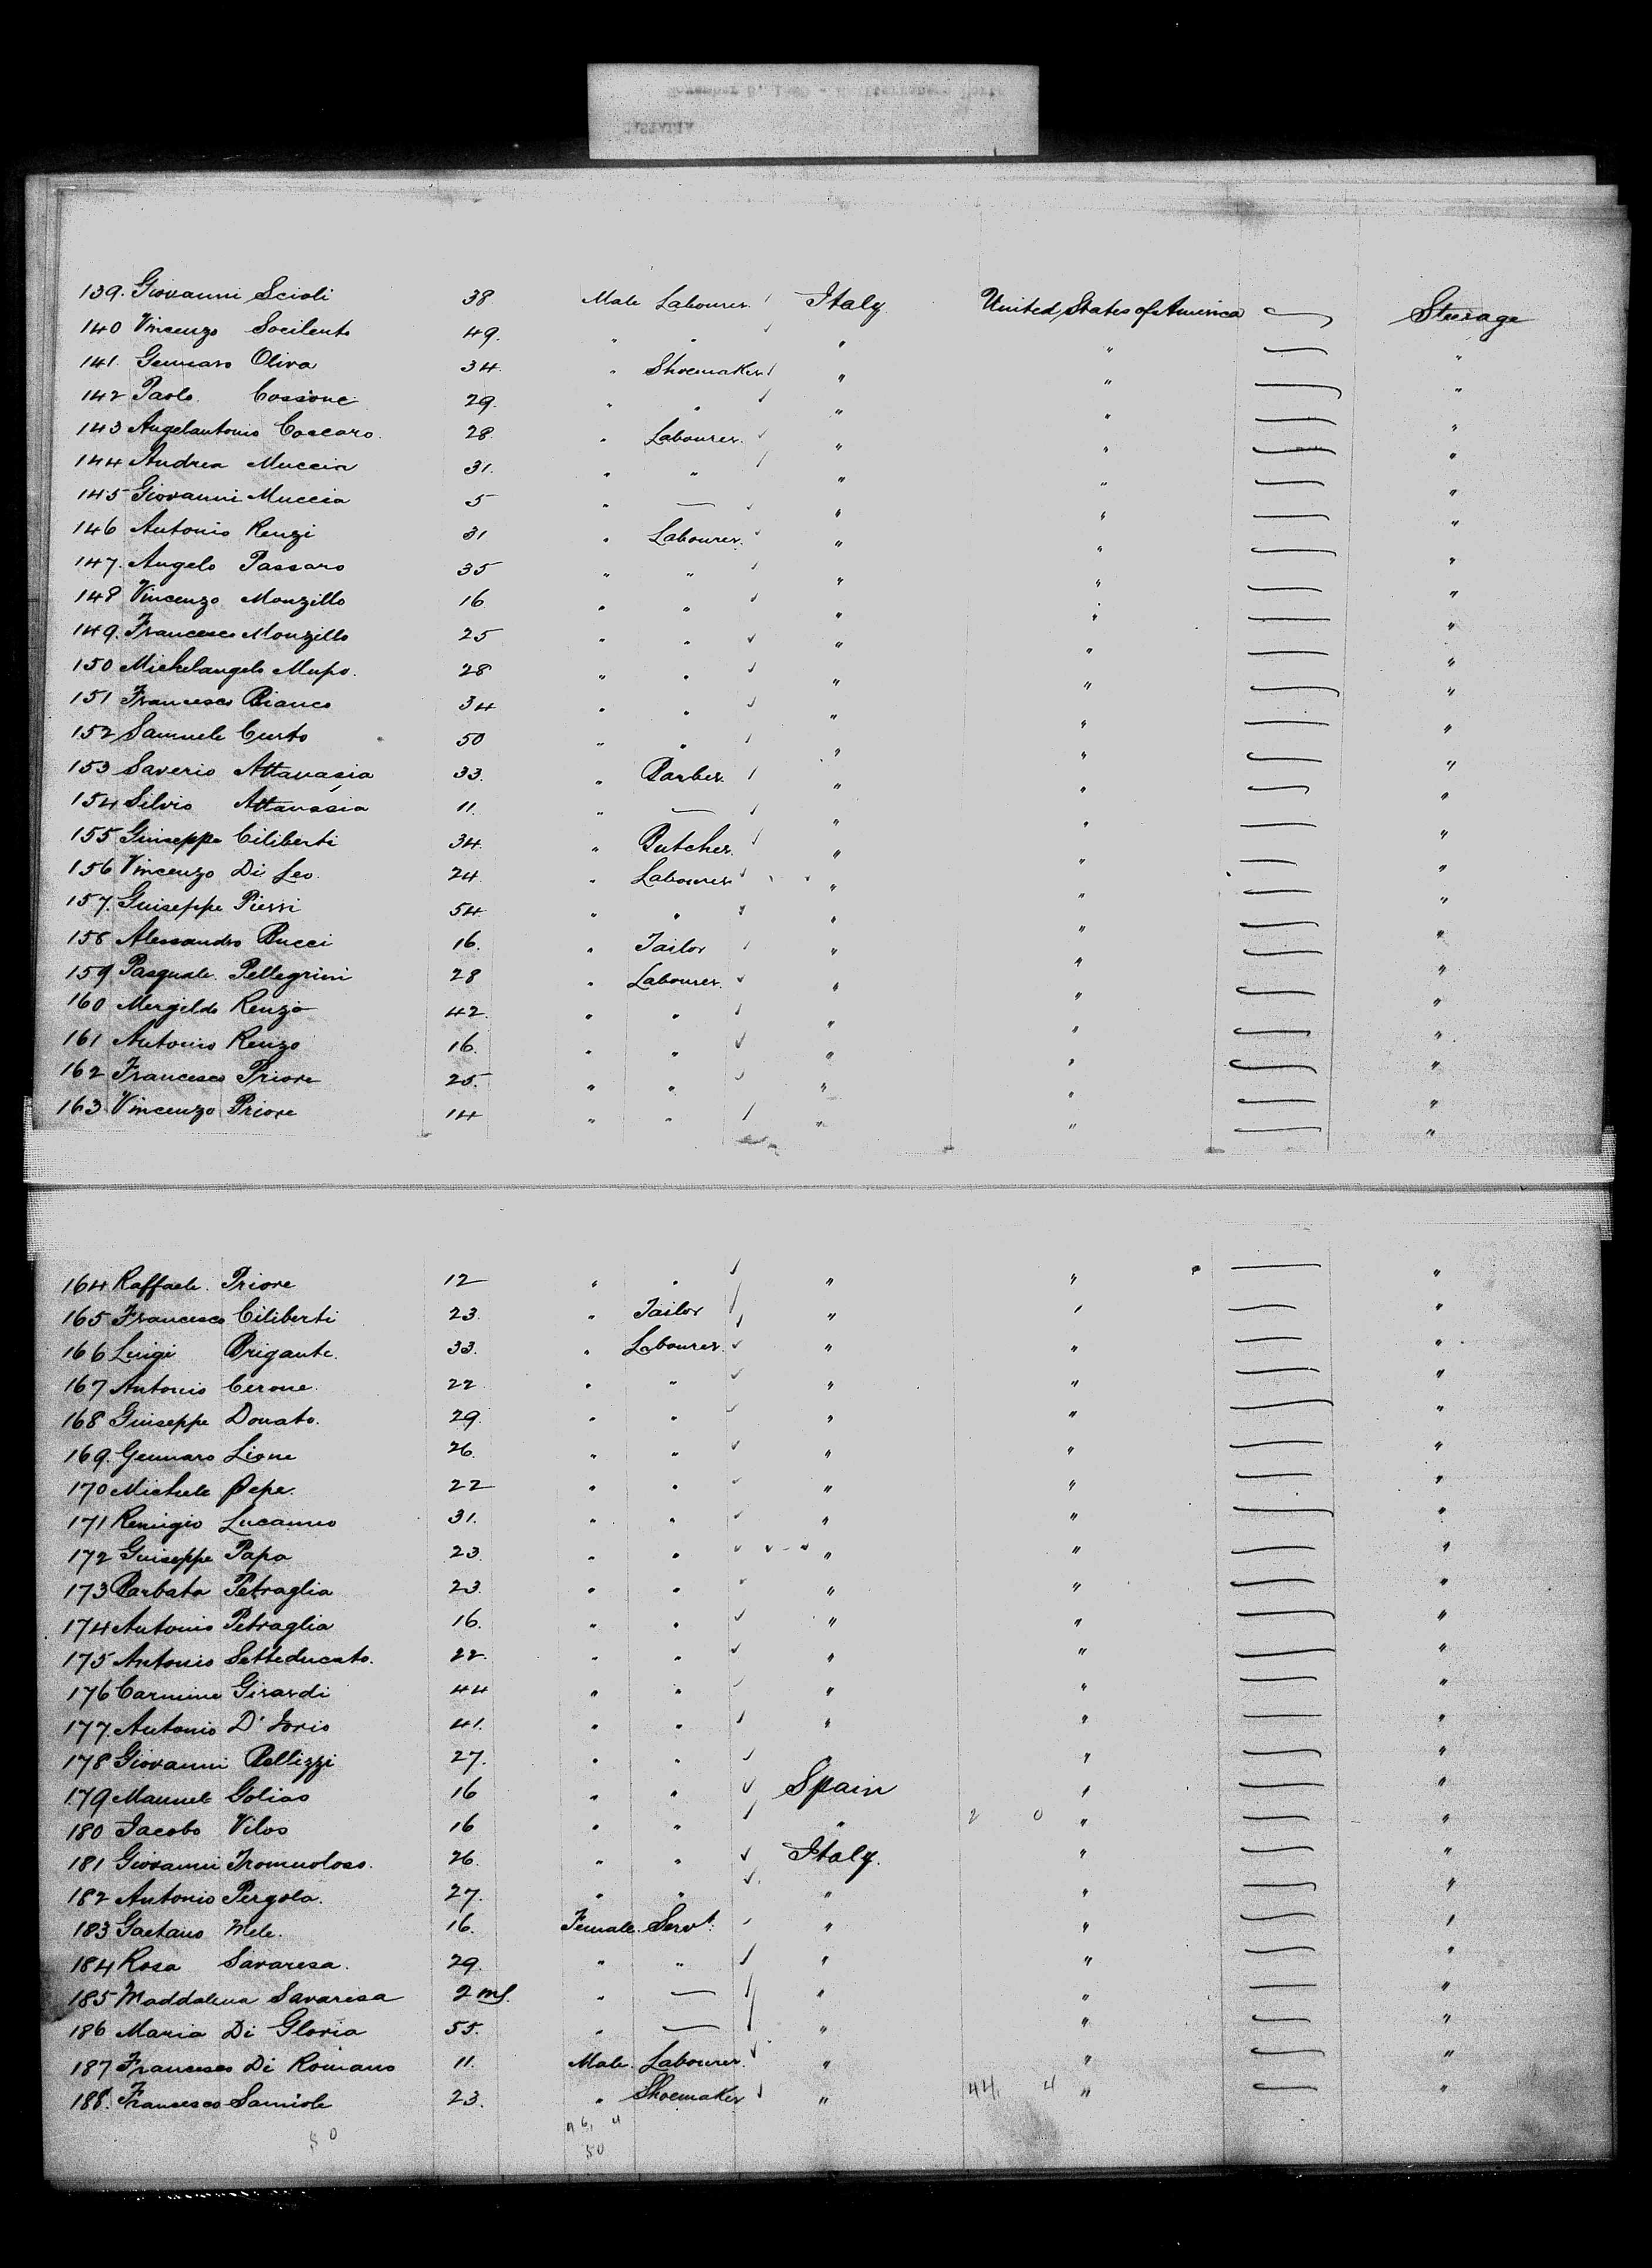 139. Giovanni Scioli 38 Male Labourer Italy United States of America Steerage
140 Vincenzo Socilento 49. " " " " "
141. Gennaro Oliva 34. " Shoemaker " " "
142 Paolo Cossone 29. " " " " "
143 Angelantonio Coccaro. 28. " Labourer. " " "
144 Andrea Muccia 31. " " " " "
145 Giovanni Muccia 5 " — " " "
146 Antonio Renzi 31 " Labourer. " " "
147. Angelo Passaro 35 " " " " "
148 Vincenzo Monzillo 16 " " " " "
149. Francesco Monzillo 25 " " " " "
150 Michelangelo Mupo. 28 " " " " "
151 Francesco Bianco 34 " " " " "
152 Samuele Curto 50 " " " " "
153 Saverio Attanasia 33. " Barber. " " "
154 Silvio Attanasia 11. " — " " "
155 Giuseppe Ciliberti 34. " Butcher. " " "
156 Vincenzo Di Leo. 24. " Labourer " " "
157. Guiseppe Pierri 54. " " " " "
158 Alessandro Bucci 16. " Tailor " " "
159 Pasquale Pellegrini 28 " Labourer. " " "
160 Mergildo Renzo 42. " " " " "
161 Antonio Renzo 16. " " " " "
162 Francesco Priore 25. " " " " "
163 Vincenzo Priore 14 " " " " "
164 Raffaele. Priore 12 " " " " "
165 Francesco Ciliberti 23. " Tailor " " "
166 Luigi Brigante. 33. " Labourer. " " "
167 Antonio Cerone. 22 " " " " "
168 Guiseppe Donato. 29. " " " " "
169. Gennaro Lione 26. " " " " "
170 Michele Pepe. 22 " " " " "
171 Remigio Lucanno 31. " " " " "
172 Guiseppe Papa 23 " " " " "
173 Barbato Petraglia 23. " " " " "
174 Antonio Petraglia 16. " " " " "
175 Antonio Setteducato. 22. " " " " "
176 Carmine Girardi 44 " " " " "
177. Antonio D'Iorio 41. " " " " "
178 Giovanni Bellizzi 27. " " " " "
179 Manuel Golias 16 " " Spain " "
180 Jacobo Vilos 16 " " " 2 0 " "
181 Giovanni 26. " " Italy. " "
182 Antonio Pergola. 27. " " " " "
183 Gaetano Mele. 16. Female. Servt. " " "
184 Rosa Savaresa. 29. " " " " "
185 Maddalena Savaresa 2 ms. " — " " "
186 Maria Di Gloria 55. " — " " "
187 Francesco Di Romano 11. Male. Labourer. " " "
188. Francesco 23. " Shoemaker " 44. 4 " "
46, 4
50 50